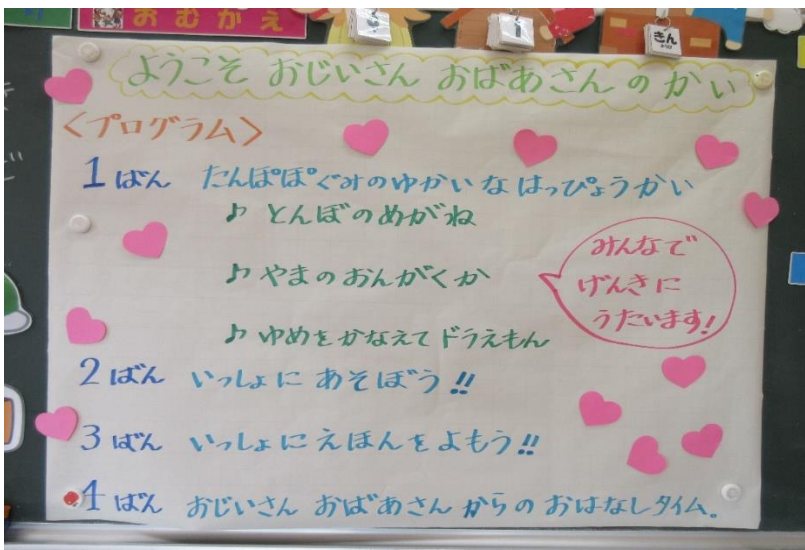 おむかえ
きん
ようこそ おじいさん おばあさん の かい
<プログラム>
1ばん たんぽぽぐみのゆかいな はっぴょうかい
♪ とんぼのめがね
♪ やまのおんがくか
♪ ゆめをかなえてドラえもん
みんなで
げんきに
うたいます!
2ばん いっしょに あそぼう!!
3ばん いっしょにえほんをよもう!!
4ばん おじいさん おばあさん からの おはなしタイム。